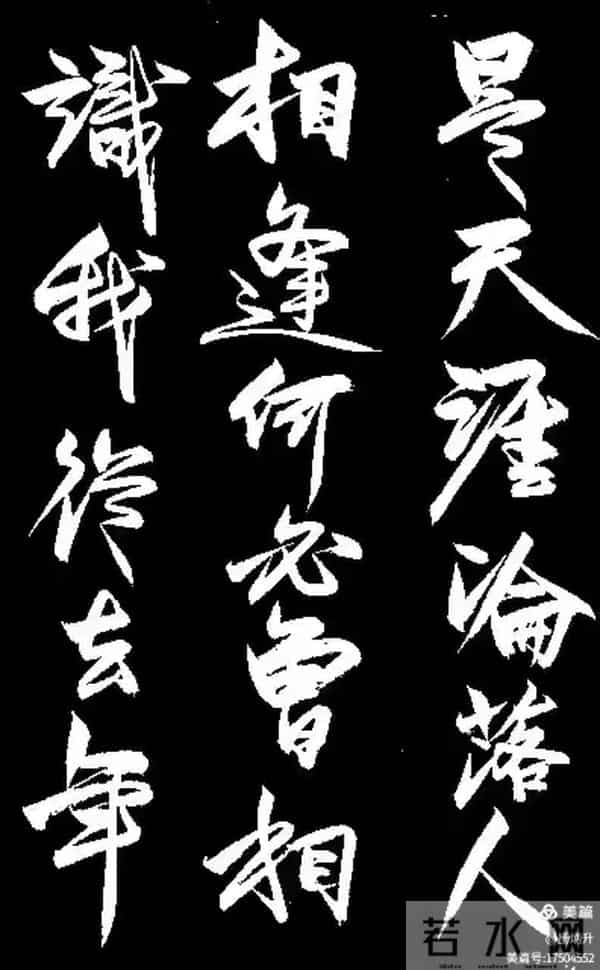 是天涯淪落人
相逢何必曾相
識我從去年
美篇
若水网
美篇号:17504552